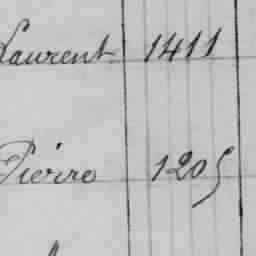 Laurent 1411
Pierre 1205